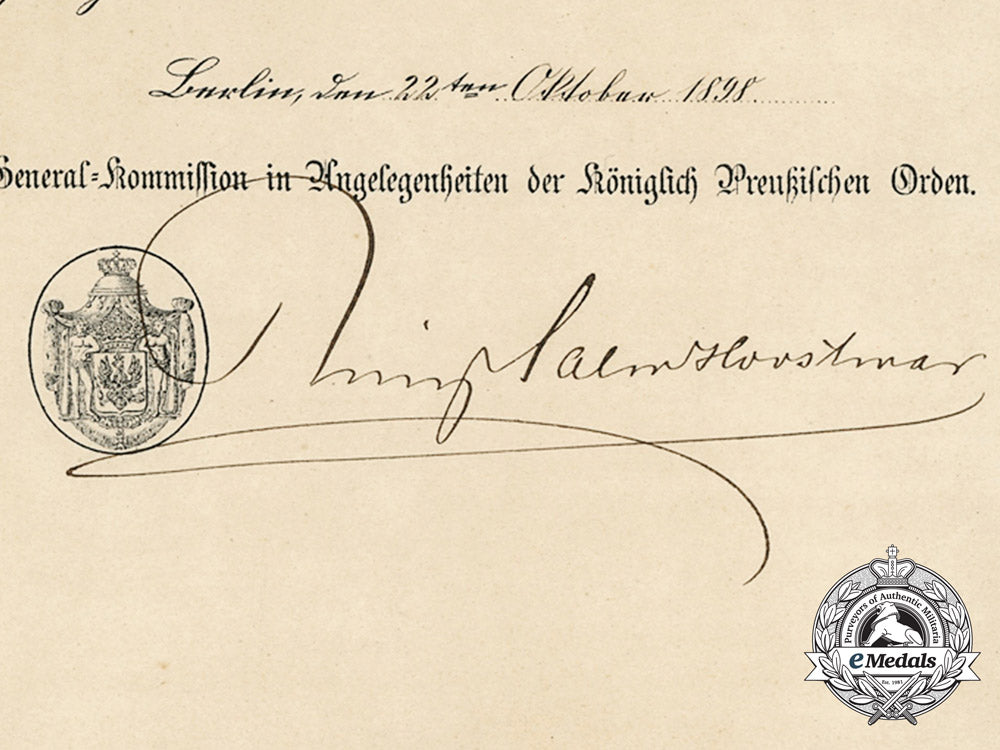 Berlin, den 22ten Oktober 1898
General-Kommission in Angelegenheiten der Königlich Preußischen Orden.
Salm Horstmar
Purveyors of Authentic Militaria
eMedals
Est. 1981